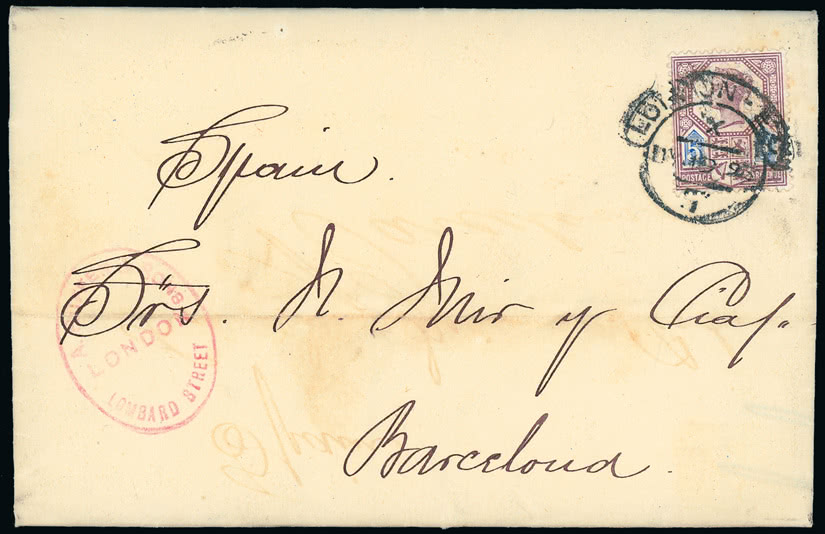 Spain.
Sõrs. N. Mir y Cia.
Barcelona.
LONDON
LOMBARD STREET
LONDON
5
POSTAGE